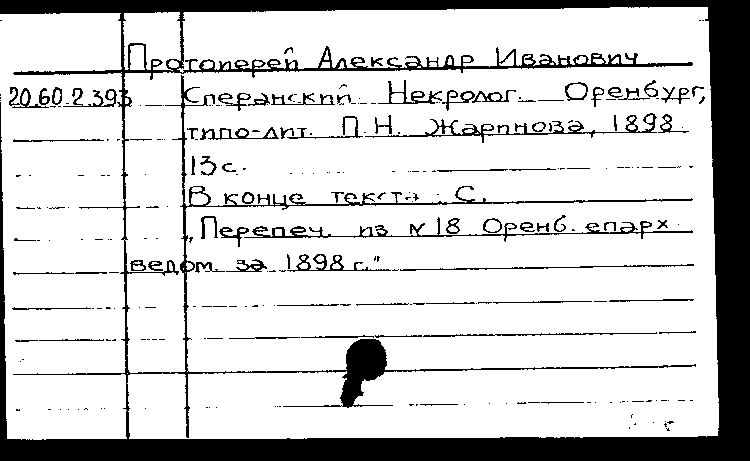 Протоиерей Александр Иванович
20.60.2.393 Сперанский. Некролог. Оренбург,
типо-лит. П.Н. Жаринова, 1898.
13 с.
В конце текста: С.
„Перепеч. из №18 Оренб. епарх.
ведом. за 1898 г."